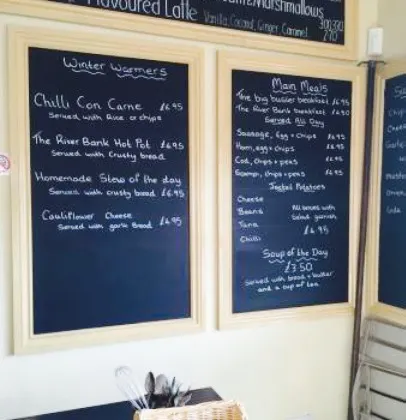 Flavoured Latte Vanilla, Coconut, Ginger, Caramel 2.70
Marshmallows
Winter Warmers
Chilli Con Carne £6.95
Served with Rice or chips
The River Bank Hot Pot £6.95
Served with Crusty bread
Homemade Stew of the day
Served with crusty bread £6.95
Cauliflower Cheese
Served with garlic Bread £6.95
Main Meals
The big buster breakfast £6.95
The River Bank breakfast
Served All Day
Sausage, Egg + Chips £4.95
Ham, egg + chips £4.95
Cod, chips + peas £4.95
Gammon, chips + peas £4.95
Jacket Potatoes
Cheese
Beans
Tuna
Chilli
All served with
Salad garnish
£4.95
Soup of the Day
£3.50
Served with bread + butter
and a cup of tea